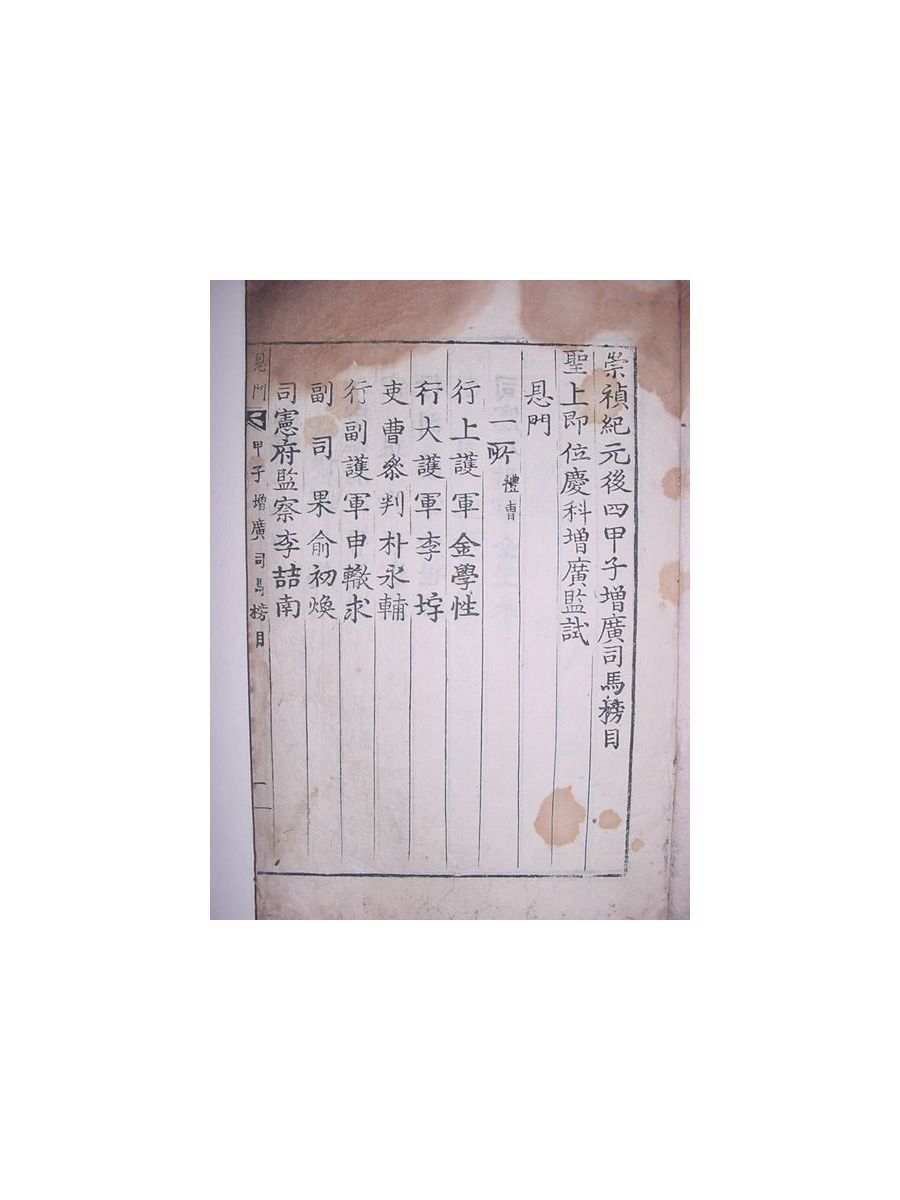 崇禎紀元後四甲子增廣司馬榜目
聖上即位慶科增廣監試
恩門
一所 禮曹
行上護軍金學性
行大護軍李㘾
吏曹叅判朴永輔
行副護軍申轍求
副司果俞初煥
司憲府監察李喆南
恩門 甲子增廣司馬榜目 一